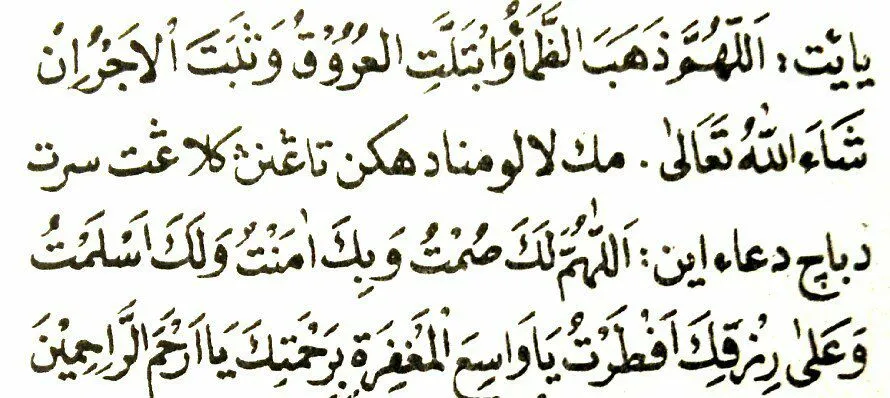 يايت: اَللّٰهُمَّ ذَهَبَ الظَّمَأُ وَابْتَلَّتِ الْعُرُوْقُ وَثَبَتَ الْاَجْرُ اِنْ
شَاءَ اللّٰهُ تَعَالٰى. مك لالو منادهكن تاڠنڽ كلاڠت سرت
دباچ دعاء اين: اَللّٰهُمَّ لَكَ صُمْتُ وَبِكَ اٰمَنْتُ وَلَكَ اَسْلَمْتُ
وَعَلٰى رِزْقِكَ اَفْطَرْتُ يَا وَاسِعَ الْمَغْفِرَةِ بِرَحْمَتِكَ يَا اَرْحَمَ الرَّاحِمِيْنَ